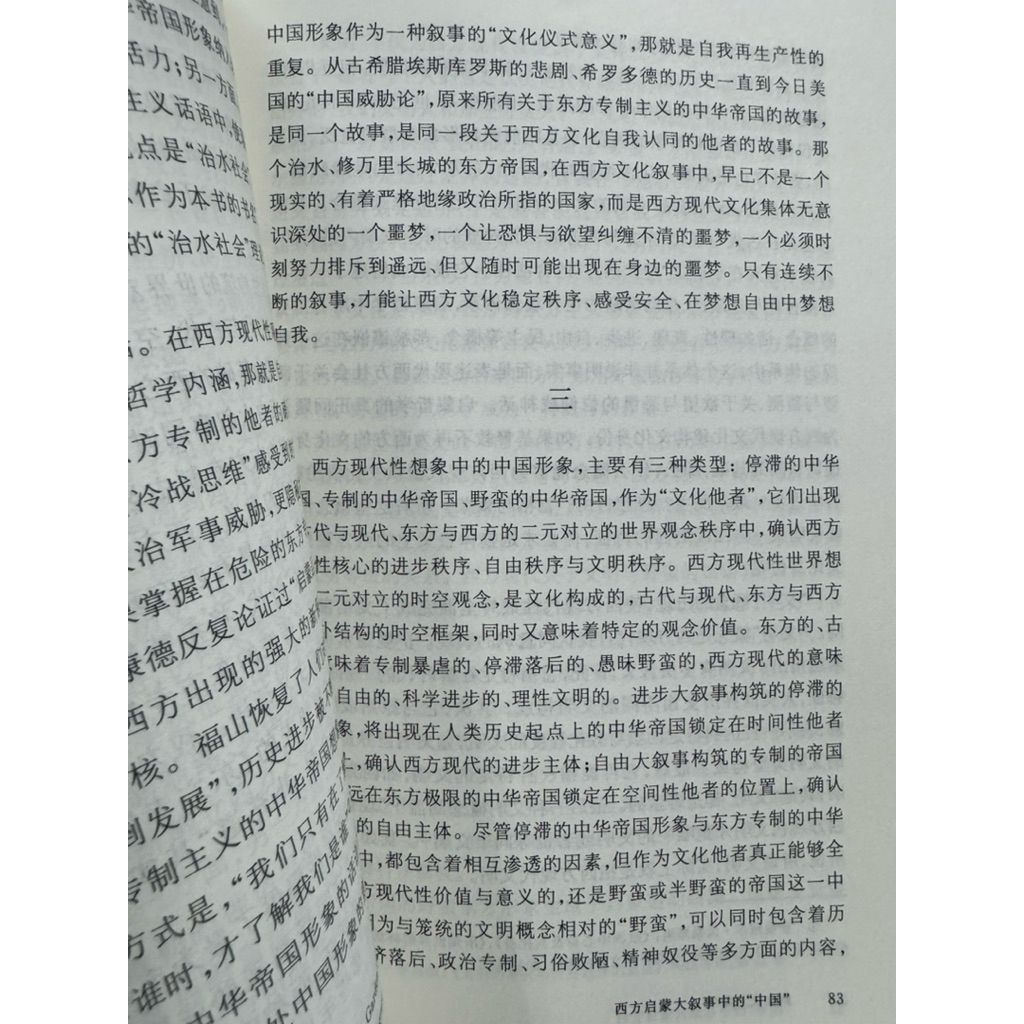 帝国形象纳入
活力；另一方面
主义话语中，使
点是“治水社会
作为本书的书名
的“治水社会”理
。在西方现代性
哲学内涵，那就是
方专制的他者的
冷战思维”感受到
治军事威胁，更隐
掌握在危险的东方
康德反复论证过“启蒙
西方出现的强大的新
核。福山恢复了人们
到发展”，历史进步被
专制主义的中华帝国
方式是，“我们只有在了
谁时，才了解我们是谁
中华帝国形象的话
处中国形象的
中国形象作为一种叙事的“文化仪式意义”，那就是自我再生产性的
重复。从古希腊埃斯库罗斯的悲剧、希罗多德的历史一直到今日美
国的“中国威胁论”，原来所有关于东方专制主义的中华帝国的故事，
是同一个故事，是同一段关于西方文化自我认同的他者的故事。那
个治水、修万里长城的东方帝国，在西方文化叙事中，早已不是一个
现实的、有着严格地缘政治所指的国家，而是西方现代文化集体无意
识深处的一个噩梦，一个让恐惧与欲望纠缠不清的噩梦，一个必须时
刻努力排斥到遥远、但又随时可能出现在身边的噩梦。只有连续不
断的叙事，才能让西方文化稳定秩序、感受安全、在梦想自由中梦想
自我。
三
西方现代性想象中的中国形象，主要有三种类型：停滞的中华
国、专制的中华帝国、野蛮的中华帝国，作为“文化他者”，它们出现
代与现代、东方与西方的二元对立的世界观念秩序中，确认西方
性核心的进步秩序、自由秩序与文明秩序。西方现代性世界想
二元对立的时空观念，是文化构成的，古代与现代、东方与西方
结构的时空框架，同时又意味着特定的观念价值。东方的、古
意味着专制暴虐的、停滞落后的、愚昧野蛮的，西方现代的意味
自由的、科学进步的、理性文明的。进步大叙事构筑的停滞的
象，将出现在人类历史起点上的中华帝国锁定在时间性他者
上，确认西方现代的进步主体；自由大叙事构筑的专制的帝国
远在东方极限的中华帝国锁定在空间性他者的位置上，确认
的自由主体。尽管停滞的中华帝国形象与东方专制的中华
中，都包含着相互渗透的因素，但作为文化他者真正能够全
方现代性价值与意义的，还是野蛮或半野蛮的帝国这一中
因为与笼统的文明概念相对的“野蛮”，可以同时包含着历
济落后、政治专制、习俗败陋、精神奴役等多方面的内容，
西方启蒙大叙事中的“中国” 83